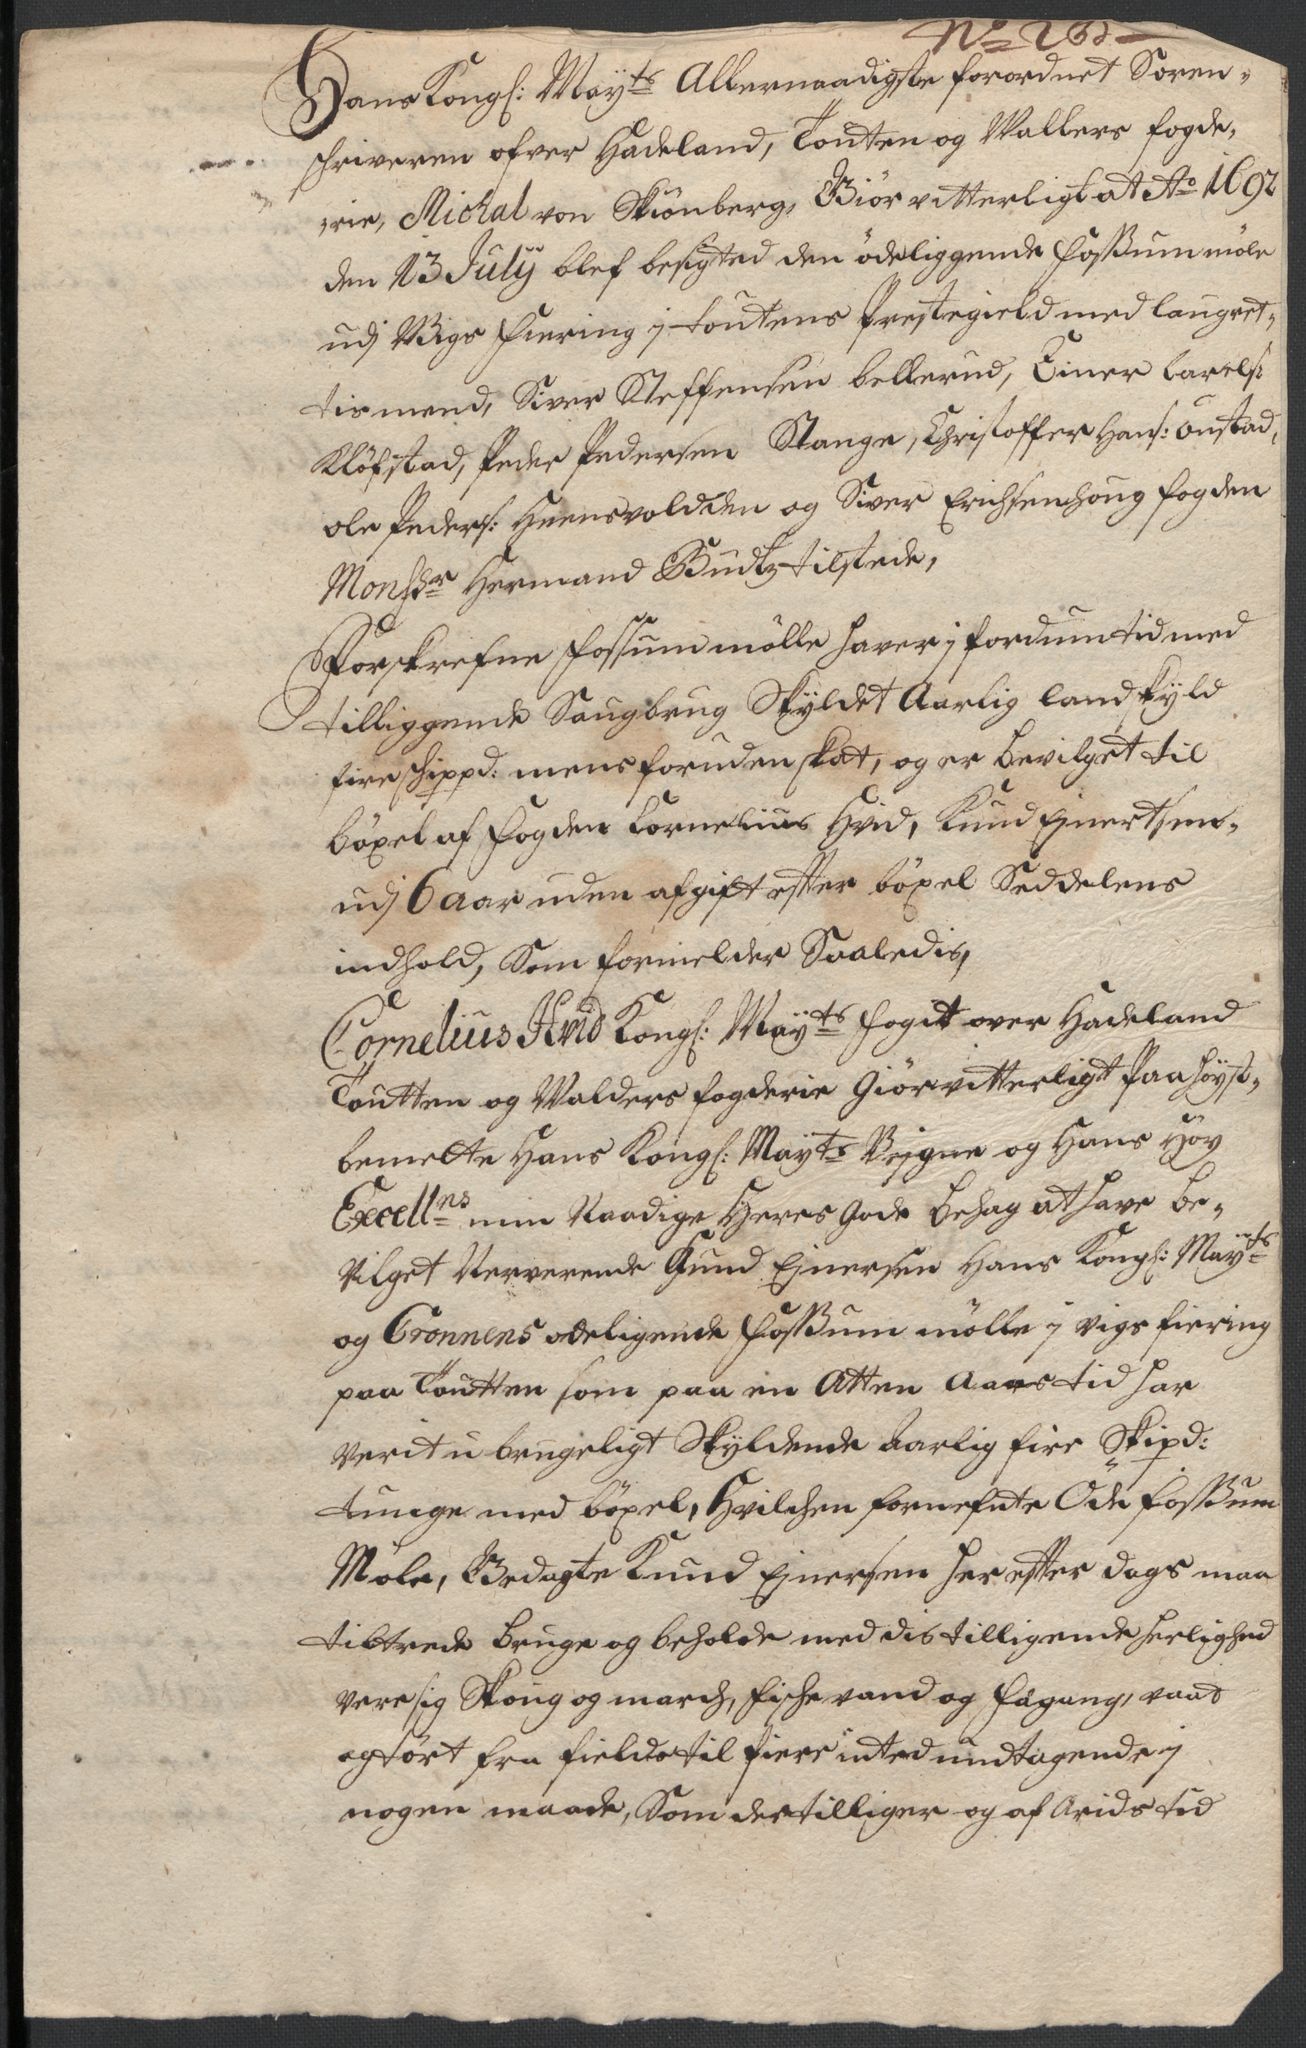 No 26
Hans Kongl: Mayts Allernaadigste forordnet Soren-
schriveren ofver Hadeland, Touten og Wallers fogde,
rie, Michal von Skiönberg, Giör vitterligt at Ao 1692
den 13 July blef besigted den ödeliggende fossum möle
udj Wigs fiering j toutens Prestegield med laugret,
tismend, Siver Steffensen bellerud, Einer Carels:
Klöfstad, Peder Pedersen Stange, Christoffer Hans: onstad,
ole Peders: Heensvoldden og Siver Erichsen houg fogden
Monsr Hermand Budtz tilstede,
Forskrefne fossum mölle haver j fordum tid med
tilliggende Saugbrug Skyldet Aarlig land skyld
fire schippd: mens foruden skat, og er bevilget til
böxel af fogden Cornelius Hvid, Knud Ejnertsen,
udj 6 aar uden afgift efter böxel Seddelens
indhold, Som formelder Saaledis,
Cornelius Hvid Kongl: Mayts fogit over Hadeland
Toutten og Walders fogderie Giör vitterligt Paa höyst,
bemelte Hans Kongl: Mayts Vejgne og Hans Höy
Excellns min Naadige Herres gode behag at have be,
vilget Nerverende Knud Ejnersen Hans Kongl: Mayts
og Cronnens ödeligende fossum mölle j Vigs fiering
paa Toutten som paa en Atten Aars tid har
verit u brugeligt Skyldende Aarlig fire Skipd:
tunge med böxel, Hvilchen fornefnte Öde fossum
Möle, Bedagte Knud Ejnersen her efter dags maa
tiltrede bruge og beholde med dis tilligende herlighed
vere sig Skoug og march, fiske vand og fægang, vaat
og tört fra fields til fiere inted undtagende j
nogen maade, Som der tilliger og af Arids tid